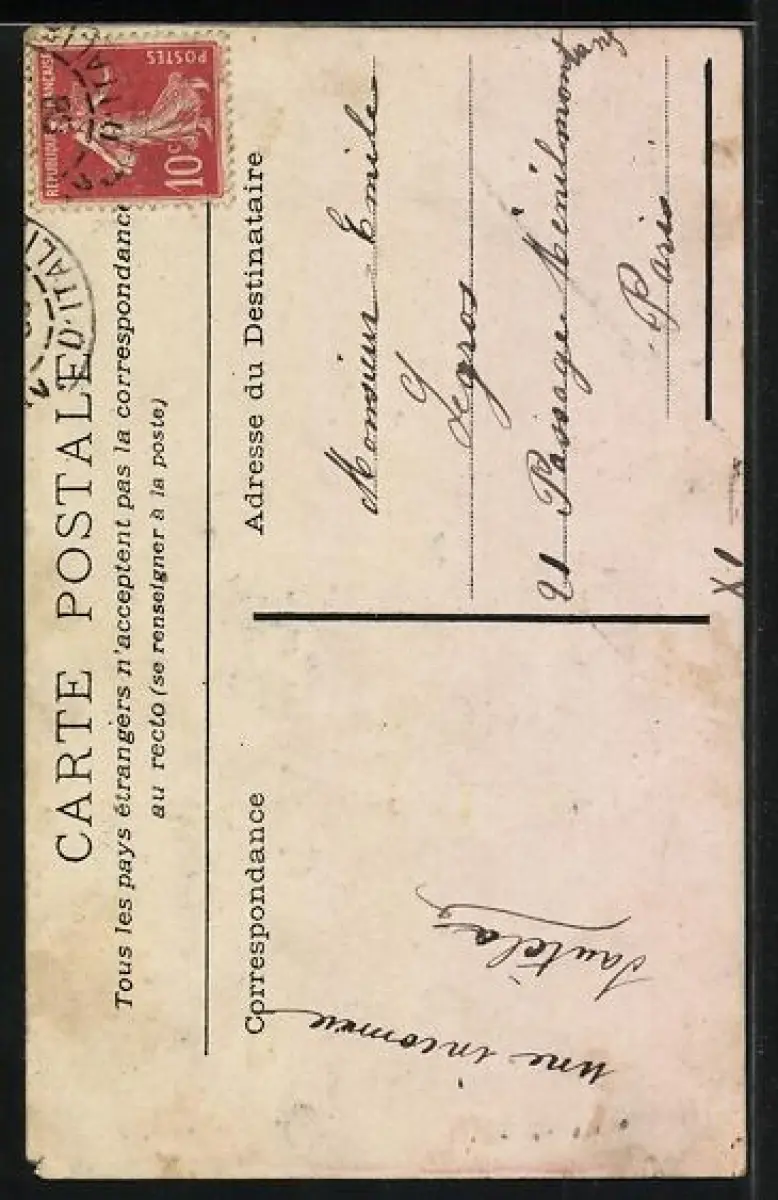 CARTE POSTALE
Tous les pays étrangers n'acceptent pas la correspondance
au recto (se renseigner à la poste)
REPUBLIQUE FRANÇAISE
POSTES
10c
D'ITALI
D'ITALI
Correspondance
une inconnue
Adresse du Destinataire
Monsieur Emile
Legros
21 Passage Ménilmontant
Paris